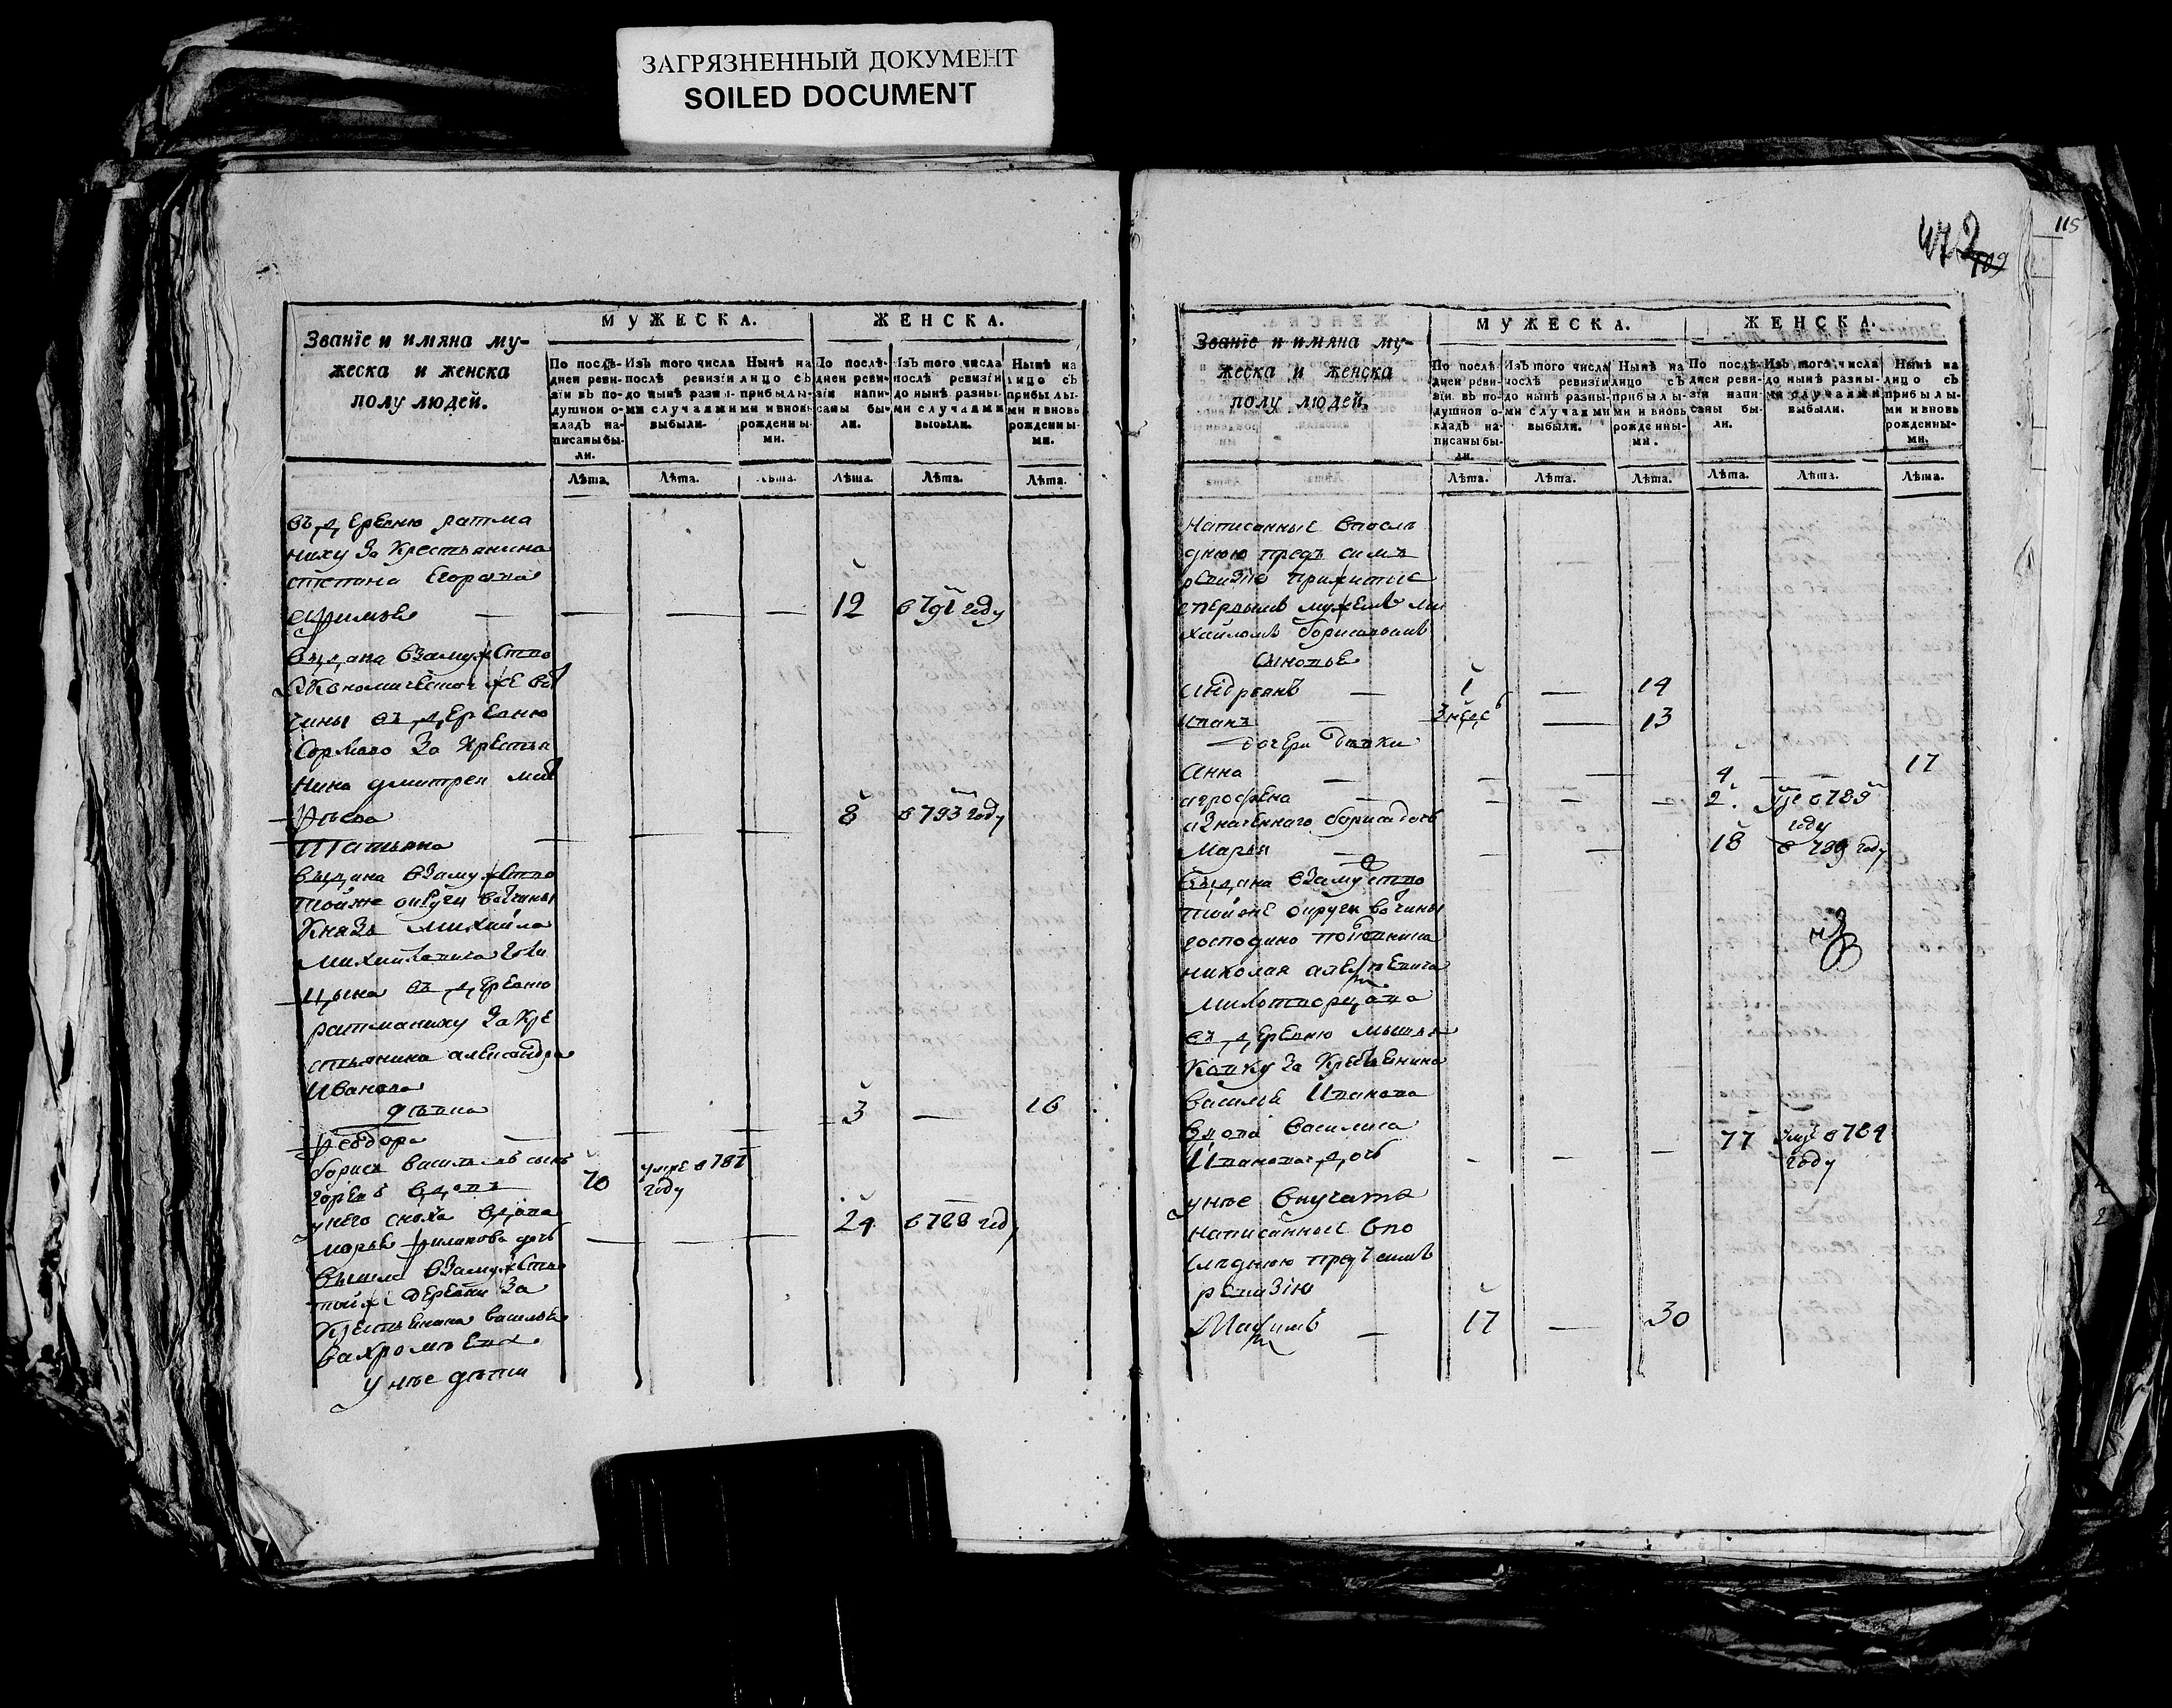 ЗАГРЯЗНЕННЫЙ ДОКУМЕНТ
SOILED DOCUMENT
115
472
109
Званїе и имяна му-
жеска и женска
полу людей.
МУЖЕСКА.
ЖЕНСКА.
По послѣ-
дней реви-
зїи въ по-
душной о-
кладъ на-
писаны бы-
ли.
Изъ того числа
послѣ ревизїи
до нынѣ разны-
ми случаями
выбыли.
Нынѣ на
лицо съ
прибылы-
ми и вновь
рожденны-
ми.
По послѣ-
дней реви-
зїи напи-
саны бы-
ли.
Изъ того числа
послѣ ревизїи
до нынѣ разны-
ми случаями
выбыли.
Нынѣ на
лицо съ
прибылы-
ми и вновь
рожденны-
ми.
Лѣта. Лѣта. Лѣта. Лѣта. Лѣта. Лѣта.
въ деревню ратма
ниху за крестьянина
степана Егорова
ефимья — — — — 12 в 791 году
выдана взамужство
Экономической же во
чины въ деревню
Сормово за крестья
нина дмитрея мат
фѣева 8 в 793 году
Татьяна
выдана взамужство
той же округи вочины
Князя михайла
михайловича Голи
цына въ деревню
ратманиху за кре
стьянина александра
Иванова
девка
феодора 3 — 16
борисъ васильевъ сынъ
вдовъ 70 умре в 782
году
у него сноха вдова
марья филипова дочь — — — 24 в 788 году
вышла взамужство
той же деревни за
крестьянина василья
вахромѣева
у нее дѣти
Званїе и имяна му-
жеска и женска
полу людей.
МУЖЕСКА.
ЖЕНСКА.
По послѣ-
дней реви-
зїи въ по-
душной о-
кладъ на-
писаны бы-
ли.
Изъ того числа
послѣ ревизїи
до нынѣ разны-
ми случаями
выбыли.
Нынѣ на
лицо съ
прибылы-
ми и вновь
рожденны-
ми.
По послѣ-
дней реви-
зїи напи-
саны бы-
ли.
Изъ того числа
до нынѣ разны-
ми случаями
выбыли.
Нынѣ на
лицо съ
прибылы-
ми и вновь
рожденны-
ми.
Лѣта. Лѣта. Лѣта. Лѣта. Лѣта. Лѣта.
написанные впослѣ
днюю предъ симъ
ревизию прижитые
спервымъ мужемъ ми
хайломъ борисовымъ
сыновье
андреянъ — 1 — 14
иванъ — 3 мсцъ — 13
дочери девки
анна — — — 4 — 17
агрофена — — — — 2 умре в 789
году
означеннаго бориса дочь
марья — — — 18 в 789 году
выдана взамужство
той же округи вочины
господина
николая алексѣевича
милотворцова
въ деревню мышья
ковку за крестьянина
василья Иванова
вдова василиса
Иванова дочь — — — 77 умре в 784
году
у нее внучата
написанные впо
следнюю предъ симъ
ревизию
Максимъ — 17 — 30